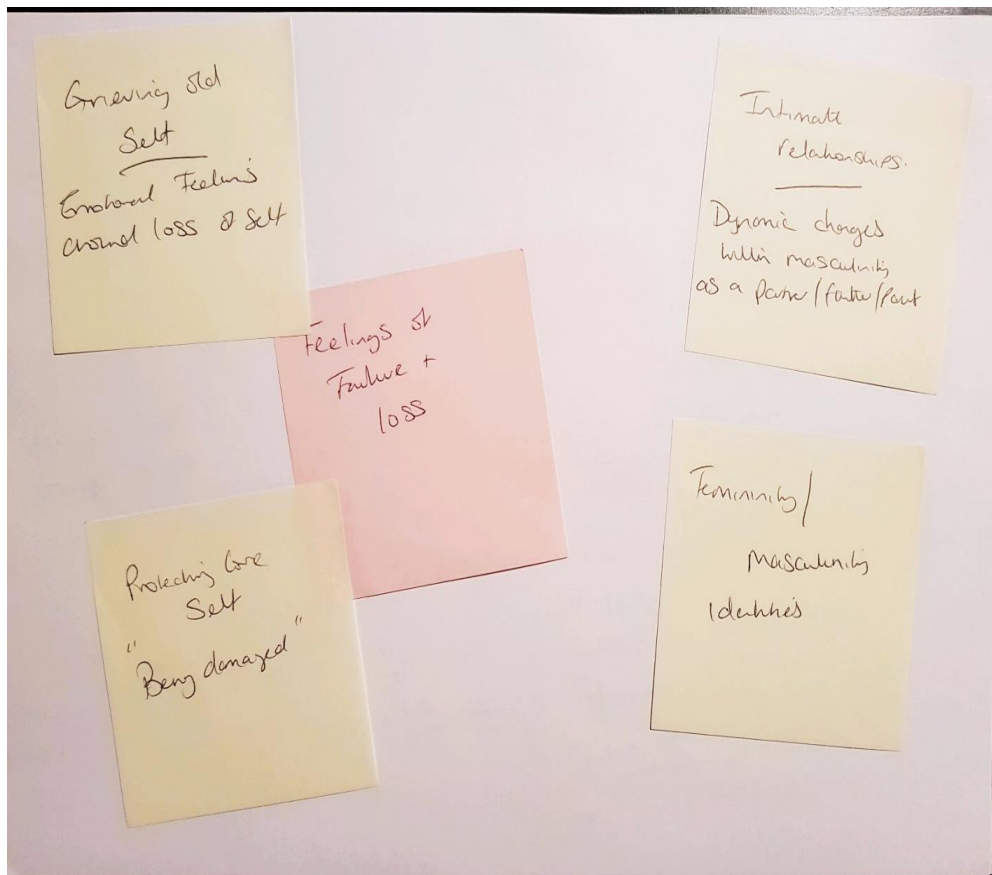 Grieving old
Self
Emotional Feelings
around loss of Self
Feelings of
Failure +
loss
Protecting Core
Self
"Being damaged"
Intimate
relationships.
Dynamic changes
within masculinity
as a partner/father/
Femininity/
Masculinity
Identities